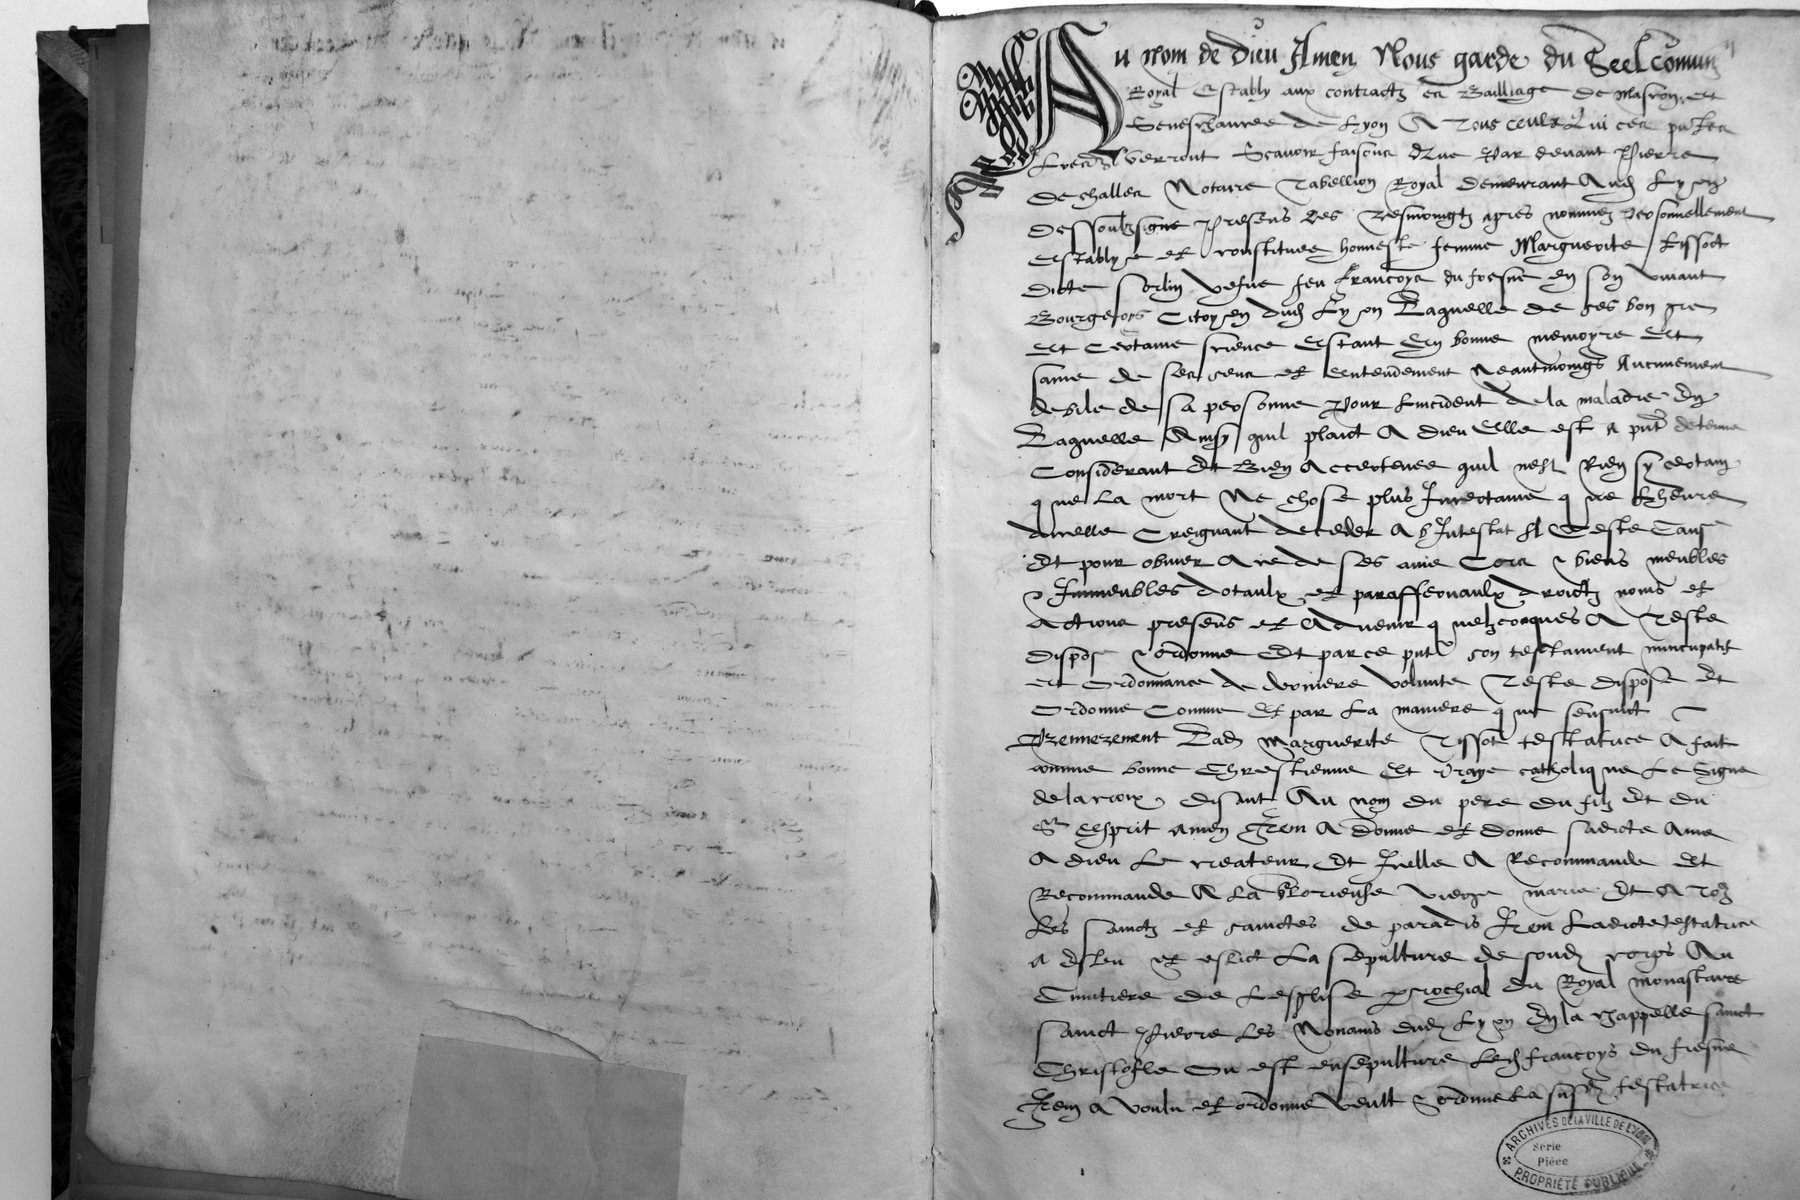 Au nom de Dieu Amen Nous garde du Seel comung
Royal Estably aux contractz es Bailliage de Mascon et
Seneschaucee de Lyon A Tous ceulx Qui ces pntes
verront Scavoir faisons Que Par devant Pierre
de challes Notaire Tabellion Royal demeurant Aud Lyon
dessoubzsigne Presens Les Tesmoingtz apres nommez personnellement
establye et constituee honneste femme Marguerite Tissot
dicte sorlin vefve feu Francoys du fresne en son vivant
Bourgeoys Citoyen dud Lyon Laquelle de ses bon gre
Et Certaine science Estant En bonne memoyre Et
saine de ses sens et Entendement Neantmoings Aucunement
debile de sa personne Pour Lincident de la maladie En
Laquelle Ainsy quil plaict A dieu Elle est a pnt detenue
Considerant Et Bien Accertenee quil nest Rien sy certain
que La mort Ne chose plus Incertaine que Lheure
dicelle Creignant deceder Ab Intestat
Et pour obvier A ce de ses ame Cors & biens meubles
& Immeubles dotaulx et paraffernaulx droictz noms et
Actions presens et Advenir quelzconques A Teste
dispose & ordonne Et par ce pnt son testament nuncupatif
et Ordonnance de derniere volunte Teste dispose Et
Ordonne Comme Et par La maniere que sensuict
Premierement Lad Marguerite Tissot testatrice A fait
comme bonne Chrestienne Et vraye catholique Le Signe
de la croix disant Au nom du pere du filz Et du
St Esprit amen Item A donne et donne sadicte Ame
A dieu Le createur Et Icelle A Recommande Et
Recommande A La Glorieuse vierge marie Et A Toz
Les sainctz et sainctes de paradis Item Ladicte testatrice
a Esleu et eslict La sepulture de sond corps Au
Cimitiere de Lesglise parrochial du Royal monastaire
sainct Pierre Les Nonains dud Lyon En la chappelle sainct
Christofle Ou est ensepulture Led francoys du fresne
Item A voulu et ordonne veult & ordonne La susd testatrice
ARCHIVES DE LA VILLE DE LYON
Série
Pièce
PROPRIÉTÉ PUBLIQUE